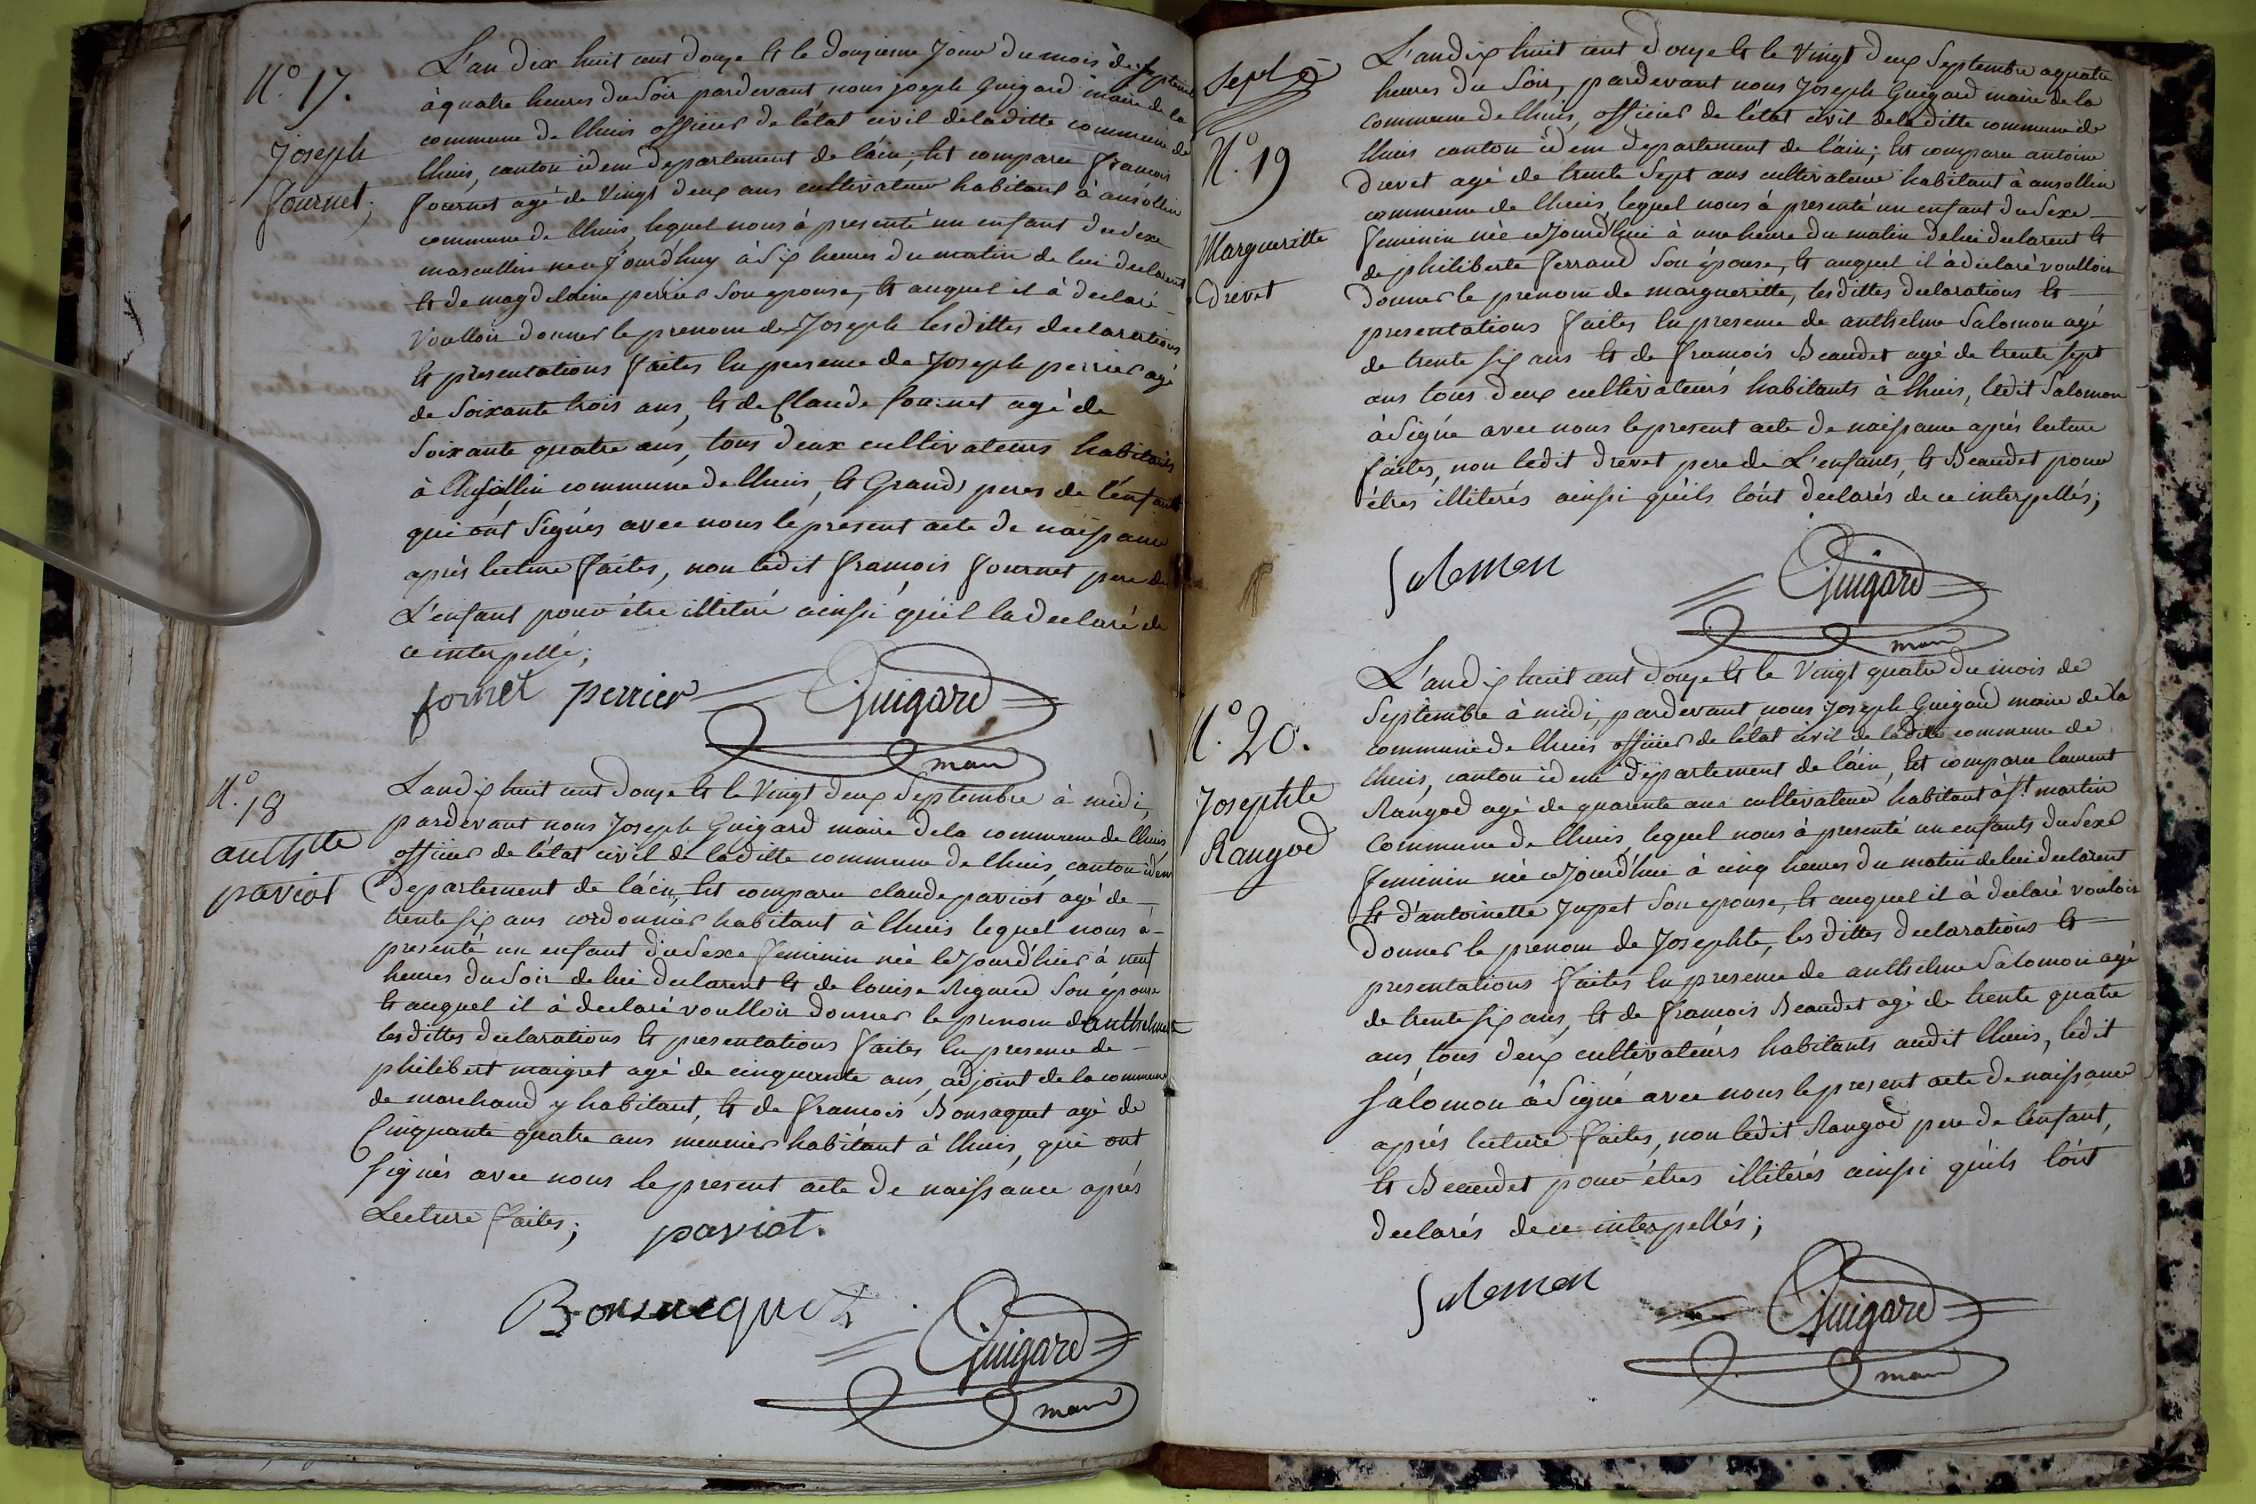 N.o 17.
Joseph
fournet;
L'an dix huit cent douze et le douzieme jour du mois de septembre
à quatre heures du Soir pardevant nous joseph Guigard maire de la
commune de lhuis officier de létat civil de laditte commune de
lhuis, canton idem departement de láin; est comparu francois
fournet agé de vingt deux ans cultivateur habitant à ansollin
commune de lhuis, lequel nous à presenté un enfant du sexe
mascullin né ce jourd'huy à Six heures du matin de lui declarent
et de magdelaine perrier Son epouse, et auquel il à declaré
voulloir donner le prenom de Joseph lesdittes declarations
et presentations faites en presence de Joseph perrier agé
de Soixante trois ans, et de Claude fournet agé de
Soixante quatre ans, tous deux cultivateurs habitants
à Ansollin commune de lhuis, et Grands peres de l'enfant
qui ont Signés avec nous le present acte de naissance
après lecture faites, non ledit francois fournet pere de
L'enfant pour étre illiteré ainsi qu'il la declaré de
ce interpellé;
fornet perrier Guigard
maire
N.o 18
anthte
paviot
L'an dix huit cent douze et le vingt deux Septembre à midi,
pardevant nous Joseph Guigard maire de la commune de lhuis
officier de létat civil de laditte commune de lhuis, canton idem
departement de láin, est comparu claude paviot agé de
trente six ans cordonnier habitant à lhuis lequel nous à
presenté un enfant du Sexe feminin né le jourd'hier à neuf
heures du Soir de lui declarent et de louise Rigaud Son épouse
et auquel il à declaré voulloir donner le prenom danthelmette
lesdittes declarations et presentations faites en presence de
philibert maigret agé de cinquante ans, adjoint de la commune
de marchand y habitant, et de francois Bonsaquet agé de
Cinquante quatre ans meunier habitant à lhuis, qui ont
signés avec nous le present acte de naissance aprés
Lecture faites;
paviot.
Bonsacquet
Guigard
maire
Sept
N.o 19
Margueritte
Drevet
L'an dix huit cent douze et le vingt deux Septembre a quatre
heures du Soir, pardevant nous Joseph Guigard maire de la
commune de lhuis, officier de létat civil de laditte commune de
lhuis canton idem departement de láin; est comparu antoine
Drevet agé de trente Sept ans cultivateur habitant à ansollin
commune de lhuis, lequel nous à presenté un enfant du Sexe
feminin née cejourd'hui à une heure du matin de lui declarent et
de philiberte ferrand Son épouse, et auquel il à declaré voulloir
donner le prenom de margueritte, lesdittes declarations et
presentations faites en presence de anthelme Salomon agé
de trente six ans et de francois Beaudet agé de trente sept
ans tous deux cultivateurs habitants à lhuis, ledit Salomon
à Signé avec nous le present acte de naissance aprés lecture
faites, non ledit Drevet pere de L'enfants, et Beaudet pour
étres illiterés ainssi qu'ils lónt declarés de ce interpellés;
Salemon Guigard
maire
N.o 20.
Josephte
Rangod
L'an dix huit cent douze et le vingt quatre du mois de
Septembre à midi, pardevant nous Joseph Guigard maire de la
commune de lhuis officier de létat civil de laditte commune de
lhuis, canton idem departement de láin, est comparu laurent
Rangod agé de quarente ans cultivateur habitant à St. martin
Commune de lhuis, lequel nous à presenté un enfants du Sexe
feminin née cejourd'hui à cinq heures du matin de lui declarent
et d'antoinette Jupet Son epouse, et auquel il à declaré vouloir
donner le prenom de Josephte, les dittes declarations et
presentations faites en presence de anthelme Salomon agé
de trente six ans, et de francois Beaudet agé de trente quatre
ans, tous deux cultivateurs habitants audit lhuis, ledit
Salomon à Signé avec nous le present acte de naissance
aprés lecture faites, non ledit Rangod pere de l'enfant,
et Beaudet pour étres illiterés ainssi qu'ils lónt
declarés de ce interpellés;
Salemon Guigard
maire